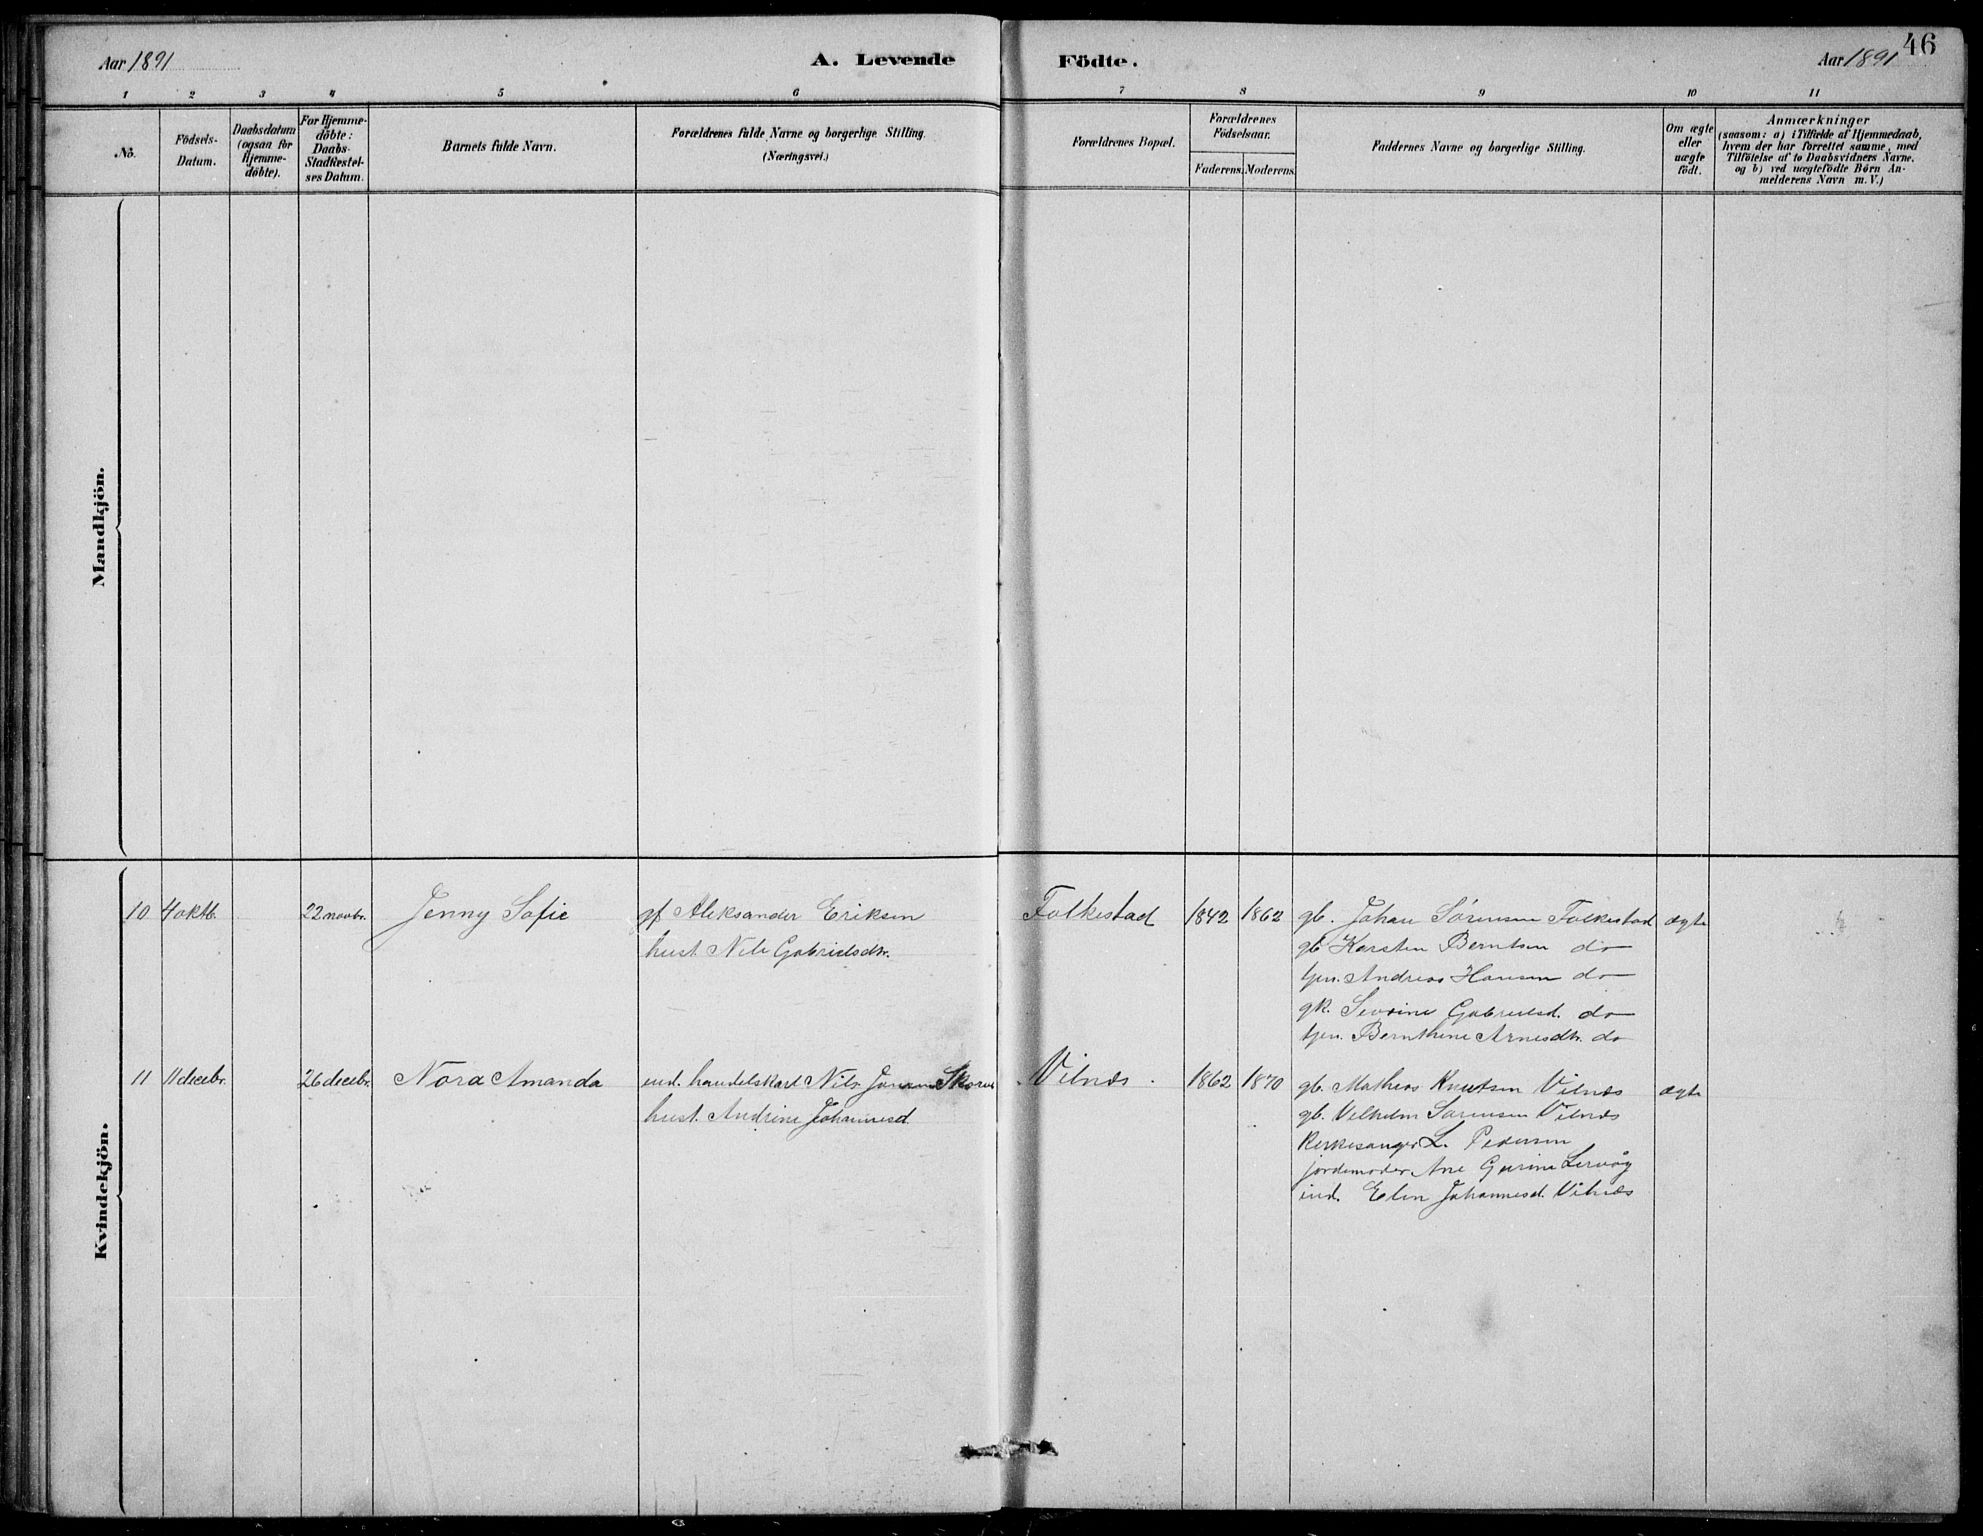 Aar 1891
A. Levende
Födte.
Aar 1891
46
1 2 3 4 5 6 7 8 9 10 11
No.
Födsels-
Datum.
Daabsdatum
(ogsaa for
Hjemme-
döbte).
For Hjemme-
döbte:
Daabs-
Stadfæstel-
ses Datum.
Barnets fulde Navn.
Forældrenes fulde Navne og borgerlige Stilling.
(Næringsvei.)
Forældrenes Bopæl.
Forældrenes
Födselsaar.
Faderens. Moderens.
Faddernes Navne og borgerlige Stilling.
Om ægte
eller
uægte
födt.
Anmærkninger
(saasom: a) i Tilfælde af Hjemmedaab,
hvem der har forrettet samme, med
Tilföielse af to Daabsvidners Navne.
og b) ved uægtefödte Börn An-
melderens Navn m. V.)
Mandkjön.
Kvindekjön.
10 4 oktb. 22 novbr. Jenny Sofie gf Aleksander Eriksen Folkestad 1842 1862 gb. Johan Sörensen Folkestad ægte
hust. Nele Gabrielsdtr. gb Karsten Berntsen do
tjen. Andreas Hansen do
gk. Severine Gabrielsd. do
tjen. Bernthine Arnesdtr. do
11 11 decbr. 26 decbr. Nora Amanda ind. handelskarl Nils Vilnæs. 1862 1870 gb. Mathias Knutsen Vilnæs ægte
hust. Andrine Johannesd. gb. Vilhelm Sörensen Vilnæs
Kirkesanger L. Pedersen
jordemoder Ane Lervåg
ind. Elen Johannesd. Vilnæs